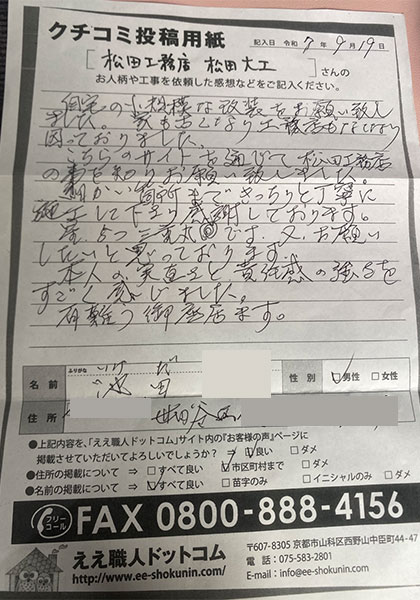 クチコミ投稿用紙
記入日 令和 7 年 9 月 19 日
[ 松田工務店 松田大工 ] さんの
お人柄や工事を依頼した感想などをご記入ください。
自宅の小規模な改装をお願い致し
ました。家も古くなり工務店も
困っておりました。
こちらのサイトを通じて松田工務店
の事を知りお願い致しました。
細かい箇所まできっちりと丁寧に
施工して下さり感謝しております。
星5つ 三重丸◎です。又、お願い
したいと思っております。
本人の実直さと責任感の強さを
すごく感じました。
有難う御座居ます。
ふりがな
名前 池田
性別 ☑男性 □女性
住所 世田谷区
●上記内容を、「ええ職人ドットコム」サイト内の『お客様の声』ページに
掲載させていただいてよろしいでしょうか? ⇒ ☑良い □ダメ
●住所の掲載について ⇒ □すべて良い ☑市区町村まで □ダメ
●名前の掲載について ⇒ ☑すべて良い □苗字のみ □イニシャルのみ □ダメ
フリーコール FAX 0800-888-4156
ええ職人ドットコム
http://www.ee-shokunin.com/
〒607-8305 京都市山科区西野山中臣町44-47
電話:075-583-2801
E-mail:info@ee-shokunin.com